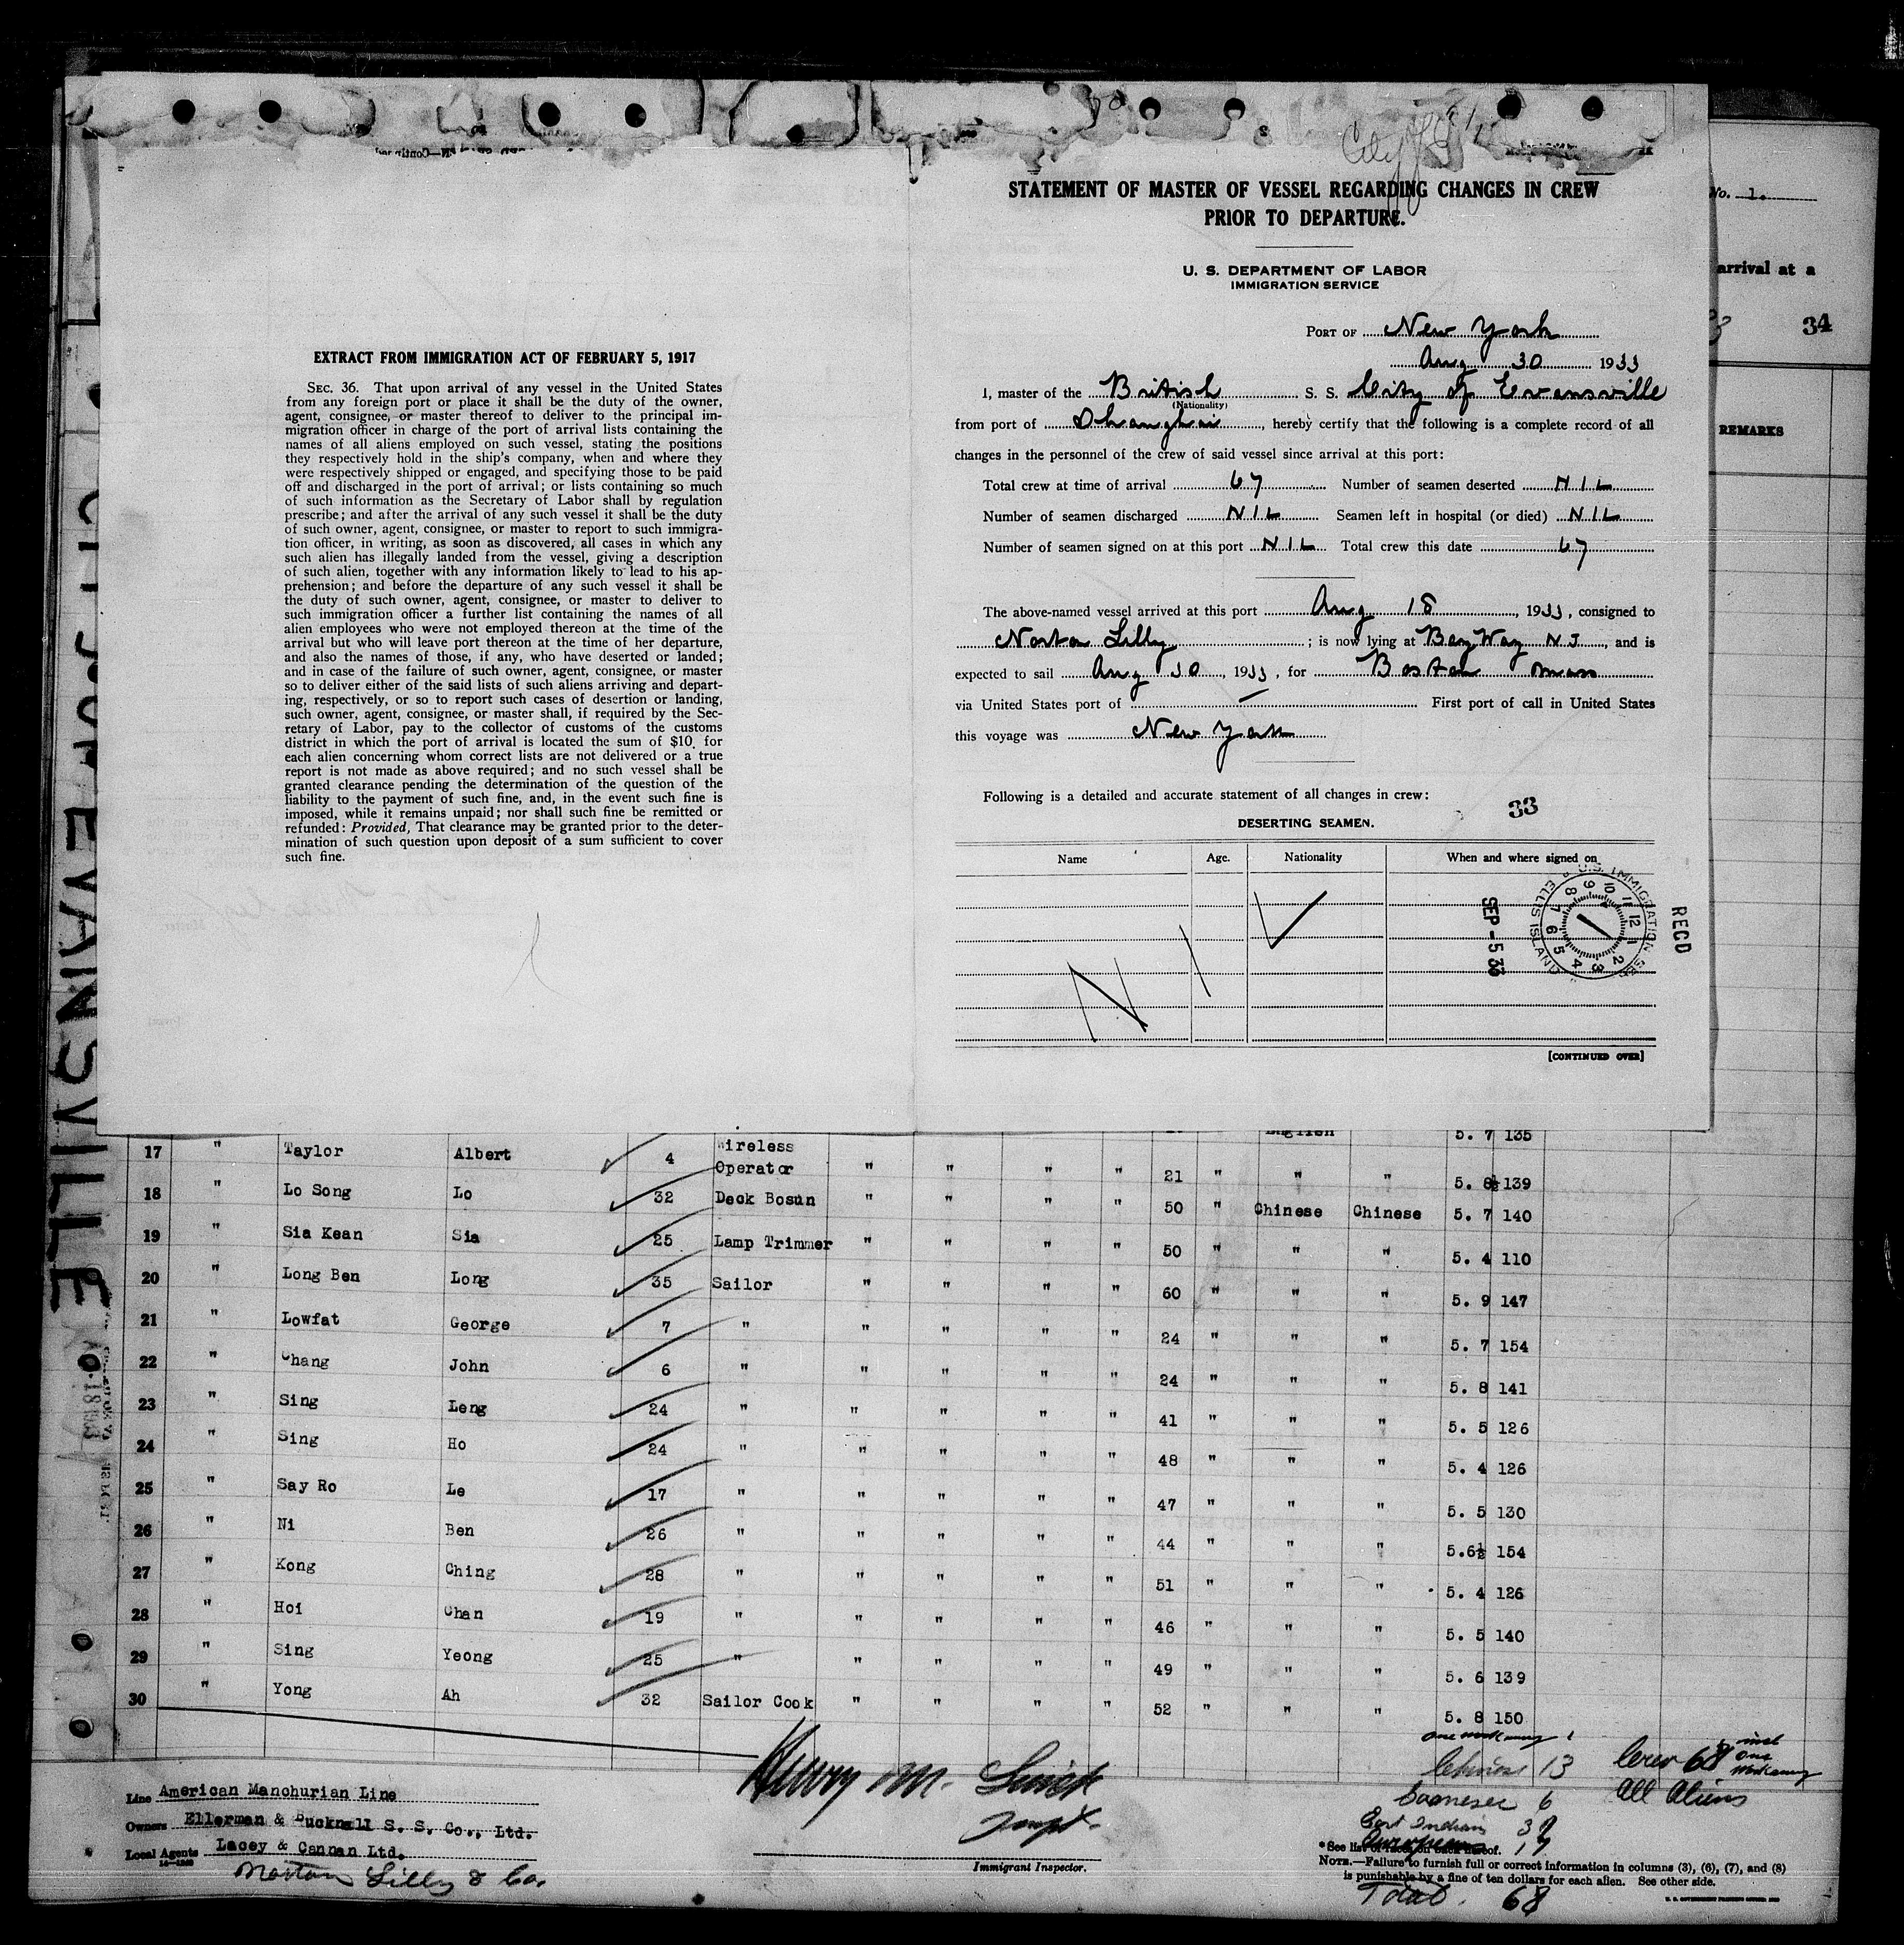 EXTRACT FROM IMMIGRATION ACT OF FEBRUARY 5, 1917
SEC. 36. That upon arrival of any vessel in the United States
from any foreign port or place it shall be the duty of the owner,
agent, consignee, or master thereof to deliver to the principal im-
migration officer in charge of the port of arrival lists containing the
names of all aliens employed on such vessel, stating the positions
they respectively hold in the ship's company, when and where they
were respectively shipped or engaged, and specifying those to be paid
off and discharged in the port of arrival; or lists containing so much
of such information as the Secretary of Labor shall by regulation
prescribe; and after the arrival of any such vessel it shall be the duty
of such owner, agent, consignee, or master to report to such immigra-
tion officer, in writing, as soon as discovered, all cases in which any
such alien has illegally landed from the vessel, giving a description
of such alien, together with any information likely to lead to his ap-
prehension; and before the departure of any such vessel it shall be
the duty of such owner, agent, consignee, or master to deliver to
such immigration officer a further list containing the names of all
alien employees who were not employed thereon at the time of the
arrival but who will leave port thereon at the time of her departure,
and also the names of those, if any, who have deserted or landed;
and in case of the failure of such owner, agent, consignee, or master
so to deliver either of the said lists of such aliens arriving and depart-
ing, respectively, or so to report such cases of desertion or landing,
such owner, agent, consignee, or master shall, if required by the Sec-
retary of Labor, pay to the collector of customs of the customs
district in which the port of arrival is located the sum of $10 for
each alien concerning whom correct lists are not delivered or a true
report is not made as above required; and no such vessel shall be
granted clearance pending the determination of the question of the
liability to the payment of such fine, and, in the event such fine is
imposed, while it remains unpaid; nor shall such fine be remitted or
refunded: Provided, That clearance may be granted prior to the deter-
mination of such question upon deposit of a sum sufficient to cover
such fine.
City of E
STATEMENT OF MASTER OF VESSEL REGARDING CHANGES IN CREW
PRIOR TO DEPARTURE.
U. S. DEPARTMENT OF LABOR
IMMIGRATION SERVICE
PORT OF New York
Aug 30 1933
I, master of the British S. S. City of Evansville
(Nationality)
from port of Shanghai, hereby certify that the following is a complete record of all
changes in the personnel of the crew of said vessel since arrival at this port:
Total crew at time of arrival 67 Number of seamen deserted NIL
Number of seamen discharged NIL Seamen left in hospital (or died) NIL
Number of seamen signed on at this port NIL Total crew this date 67
The above-named vessel arrived at this port Aug 18, 1933, consigned to
Norton Lilly; is now lying at BayWay NJ, and is
expected to sail Aug 30, 1933, for Boston Mass
via United States port of — First port of call in United States
this voyage was New York
Following is a detailed and accurate statement of all changes in crew:
33
DESERTING SEAMEN.
Name Age. Nationality When and where signed on
U. S. IMMIGRATION SER
ELLIS ISLAND
SEP - 5 33
RECD
[CONTINUED OVER]
No. 1.
arrival at a
34
REMARKS
EVANSVILLE
English " 5. 7 135
17 " Taylor Albert 4 Wireless Operator " " " " 21 " " " 5. 8½ 139
18 " Lo Song Lo 32 Deck Bosun " " " " 50 " Chinese Chinese 5. 7 140
19 " Sia Kean Sia 25 Lamp Trimmer " " " " 50 " " " 5. 4 110
20 " Long Ben Long 35 Sailor " " " " 60 " " " 5. 9 147
21 " Lowfat George 7 " " " " " 24 " " " 5. 7 154
22 " Chang John 6 " " " " " 24 " " " 5. 8 141
23 " Sing Leng 24 " " " " " 41 " " " 5. 5 126
24 " Sing Ho 24 " " " " " 48 " " " 5. 4 126
25 " Say Ro Le 17 " " " " " 47 " " " 5. 5 130
26 " Ni Ben 26 " " " " " 44 " " " 5.6½ 154
27 " Kong Ching 28 " " " " " 51 " " " 5. 4 126
28 " Hoi Chan 19 " " " " " 46 " " " 5. 5 140
29 " Sing Yeong 25 " " " " " 49 " " " 5. 6 139
30 " Yong Ah 32 Sailor Cook " " " " 52 " " " 5. 8 150
Chinese 13
Crew 68 incl one workaway
All Aliens
6
East Indian
European 17
Total 68
Line American Manchurian Line
Owners Ellerman & Bucknall S. S. Co., Ltd.
Local Agents Lacey & Cannan Ltd.
Norton Lilly & Co.
Henry M.
Immigrant Inspector.
*See list of races on back hereof.
NOTE.—Failure to furnish full or correct information in columns (3), (6), (7), and (8)
is punishable by a fine of ten dollars for each alien. See other side.